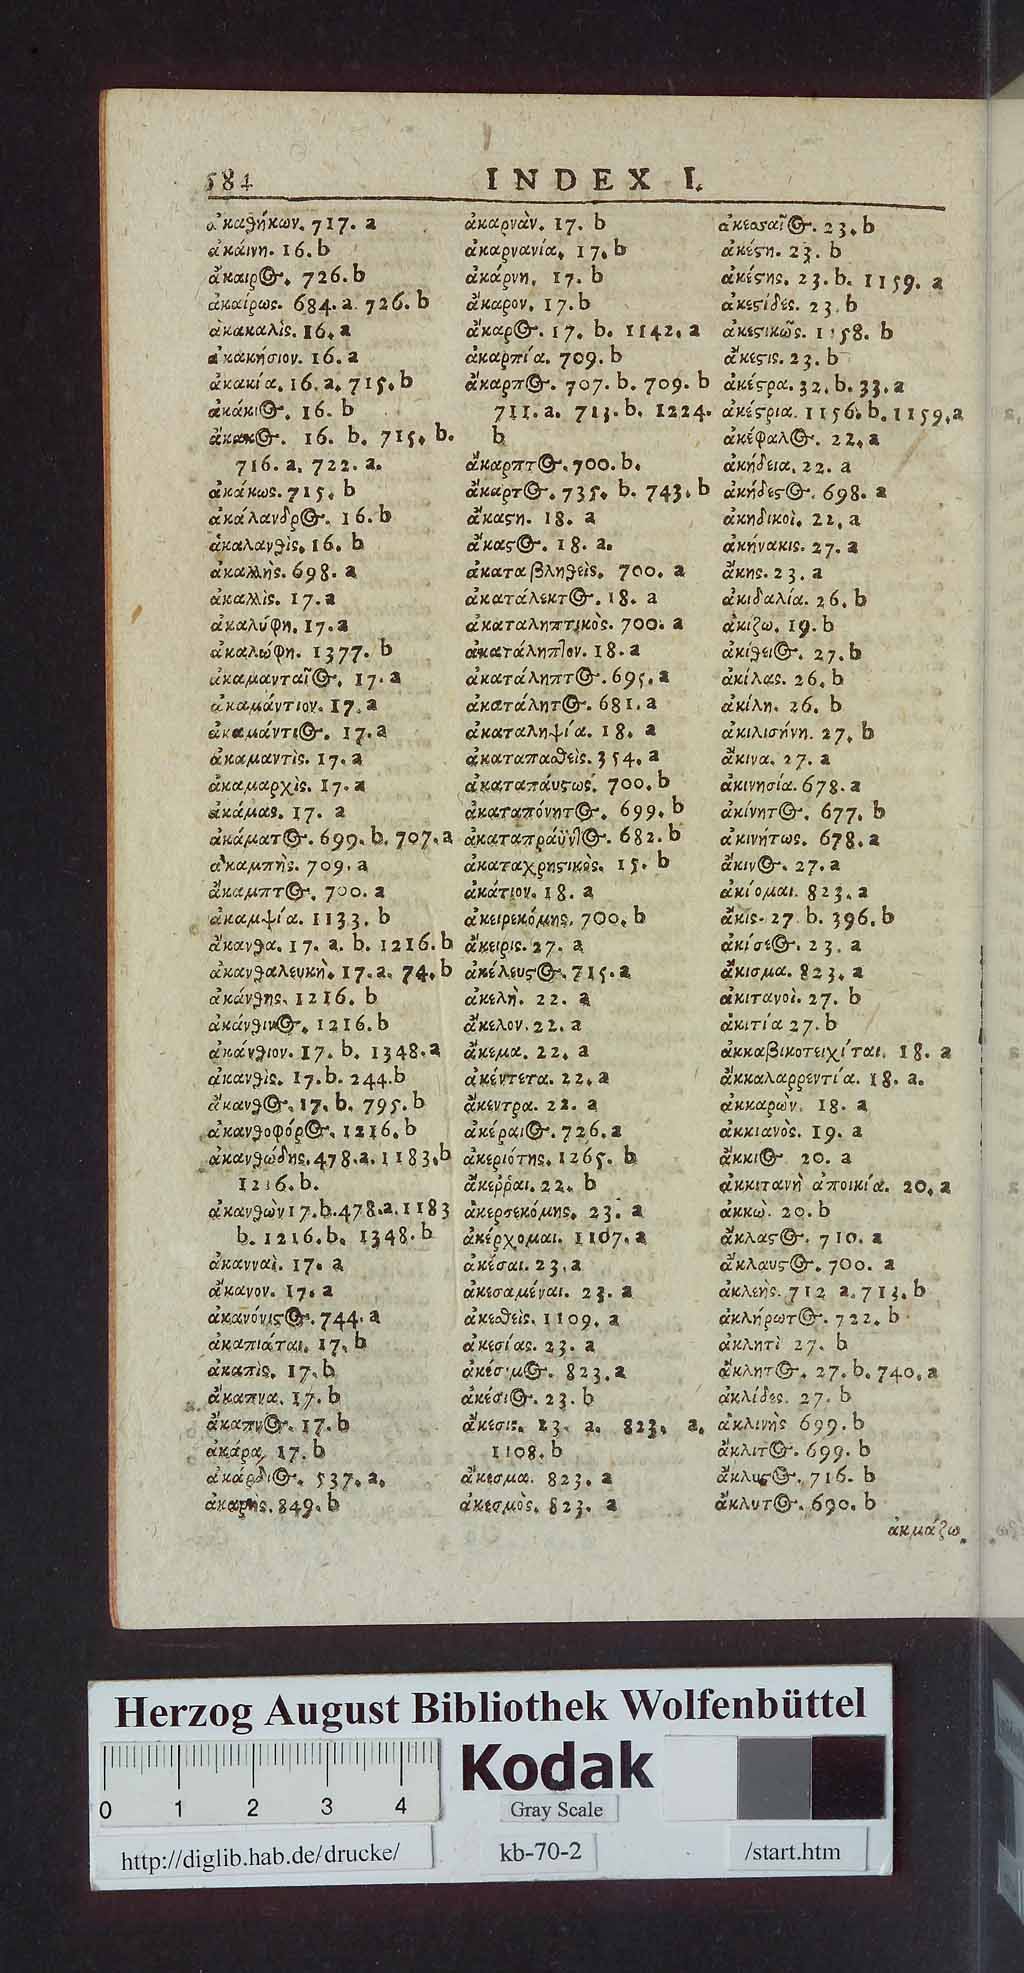 584 INDEX I.
ἀκαθήκων. 717. a
ἀκάινη. 16. b
ἄκαιρος. 726. b
ἀκαίρως. 684. a. 726. b
ἀκακαλὶς. 16. a
ἀκακήσιον. 16. a
ἀκακία. 16. a. 715. b
ἀκάκιος. 16. b
ἄκακος. 16. b. 715. b.
716. a. 722. a.
ἀκάκως. 715. b
ἀκάλανδρος. 16. b
ἀκαλανθὶς. 16. b
ἀκαλλὴς. 698. a
ἀκαλλὶς. 17. a
ἀκαλύφη. 17. a
ἀκαλώφη. 1377. b
ἀκαμανταῖος. 17. a
ἀκαμάντιον. 17. a
ἀκαμάντιος. 17. a
ἀκαμαντὶς. 17. a
ἀκαμαρχὶς. 17. a
ἀκάμας. 17. a
ἀκάματος. 699. b. 707. a
ἀκαμπὴς. 709. a
ἄκαμπτος. 700. a
ἀκαμψία. 1133. b
ἄκανθα. 17. a. b. 1216. b
ἀκανθαλευκὴ. 17. a. 74. b
ἀκάνθης. 1216. b
ἀκάνθινος. 1216. b
ἀκάνθιον. 17. b. 1348. a
ἀκανθὶς. 17. b. 244. b
ἄκανθος. 17. b. 795. b
ἀκανθοφόρος. 1216. b
ἀκανθώδης. 478. a. 1183. b
1216. b.
ἀκανθὼν 17. b. 478. a. 1183
b. 1216. b. 1348. b
ἀκανναὶ. 17. a
ἄκανον. 17. a
ἀκανόνιστος. 744. a
ἀκαπιάται. 17. b
ἀκαπὶς. 17. b
ἄκαπνα. 17. b
ἄκαπνος. 17. b
ἀκάρα. 17. b
ἀκάρδιος. 537. a.
ἀκαρὴς. 849. b
ἀκαρνὰν. 17. b
ἀκαρνανία. 17. b
ἀκάρνη. 17. b
ἄκαρον. 17. b
ἄκαρος. 17. b. 1142. a
ἀκαρπία. 709. b
ἄκαρπος. 707. b. 709. b
711. a. 713. b. 1224.
b
ἄκαρπτος. 700. b.
ἄκαρτος. 735. b. 743. b
ἄκαστη. 18. a
ἄκαστος. 18. a.
ἀκαταβληθεὶς. 700. a
ἀκατάλεκτος. 18. a
ἀκαταληπτικὸς. 700. a
ἀκατάληπτον. 18. a
ἀκατάληπτος. 695. a
ἀκατάλητος. 681. a
ἀκαταληψία. 18. a
ἀκαταπαθεὶς. 354. a
ἀκαταπάυστως. 700. b
ἀκαταπόνητος. 699. b
ἀκαταπράϋντος. 682. b
ἀκαταχρηστικὸς. 15. b
ἀκάτιον. 18. a
ἀκειρεκόμης. 700. b
ἄκειρις. 27. a
ἀκέλευστος. 715. a
ἀκελὴ. 22. a
ἄκελον. 22. a
ἄκεμα. 22. a
ἀκέντετα. 22. a
ἄκεντρα. 22. a
ἀκέραιος. 726. a
ἀκεριότης. 1265. b
ἄκεῤῥαι. 22. b
ἀκερσεκόμης. 23. a
ἀκέρχομαι. 1107. a
ἀκέσαι. 23. a
ἀκεσαμέναι. 23. a
ἀκεσθεὶς. 1109. a
ἀκεσίας. 23. a
ἀκέσιμος. 823. a
ἀκέσιος. 23. b
ἄκεσις. 23. a. 823. a.
1108. b
ἄκεσμα. 823. a
ἀκεσμὸς. 823. a
ἀκεσταῖος. 23. b
ἀκέστη. 23. b
ἀκέστης. 23. b. 1159. a
ἀκεστίδες. 23. b
ἀκεστικῶς. 1158. b
ἄκεστις. 23. b
ἀκέστρα. 32. b. 33. a
ἀκέστρια. 1156. b. 1159. a
ἀκέφαλος. 22. a
ἀκήδεια. 22. a
ἀκήδεστος. 698. a
ἀκηδικοὶ. 22. a
ἀκήνακις. 27. a
ἄκης. 23. a
ἀκιδαλία. 26. b
ἀκίζω. 19. b
ἀκίθειος. 27. b
ἀκίλας. 26. b
ἀκίλη. 26. b
ἀκιλισήνη. 27. b
ἄκινα. 27. a
ἀκινησία. 678. a
ἀκίνητος. 677. b
ἀκινήτως. 678. a
ἄκινος. 27. a
ἀκίομαι. 823. a
ἄκις. 27. b. 396. b
ἀκίσεος. 23. a
ἄκισμα. 823. a
ἀκιτανοὶ. 27. b
ἀκιτία 27. b
ἀκκαβικοτειχίται. 18. a
ἀκκαλαρρεντία. 18. a.
ἀκκαρὼν. 18. a
ἀκκιανὸς. 19. a
ἄκκιος 20. a
ἀκκιτανὴ ἀποικία. 20. a
ἀκκὼ. 20. b
ἄκλαστος. 710. a
ἄκλαυστος. 700. a
ἀκλεὴς. 712 a. 713. b
ἀκλήρωτος. 722. b
ἀκλητὶ 27. b
ἄκλητος. 27. b. 740. a
ἀκλίδες. 27. b
ἀκλινὴς 699. b
ἄκλιτος. 699. b
ἄκλυστος. 716. b
ἄκλυτος. 690. b
ἀκμάζω.
Herzog August Bibliothek Wolfenbüttel
Kodak
0 1 2 3 4
Gray Scale
http://diglib.hab.de/drucke/ kb-70-2 /start.htm